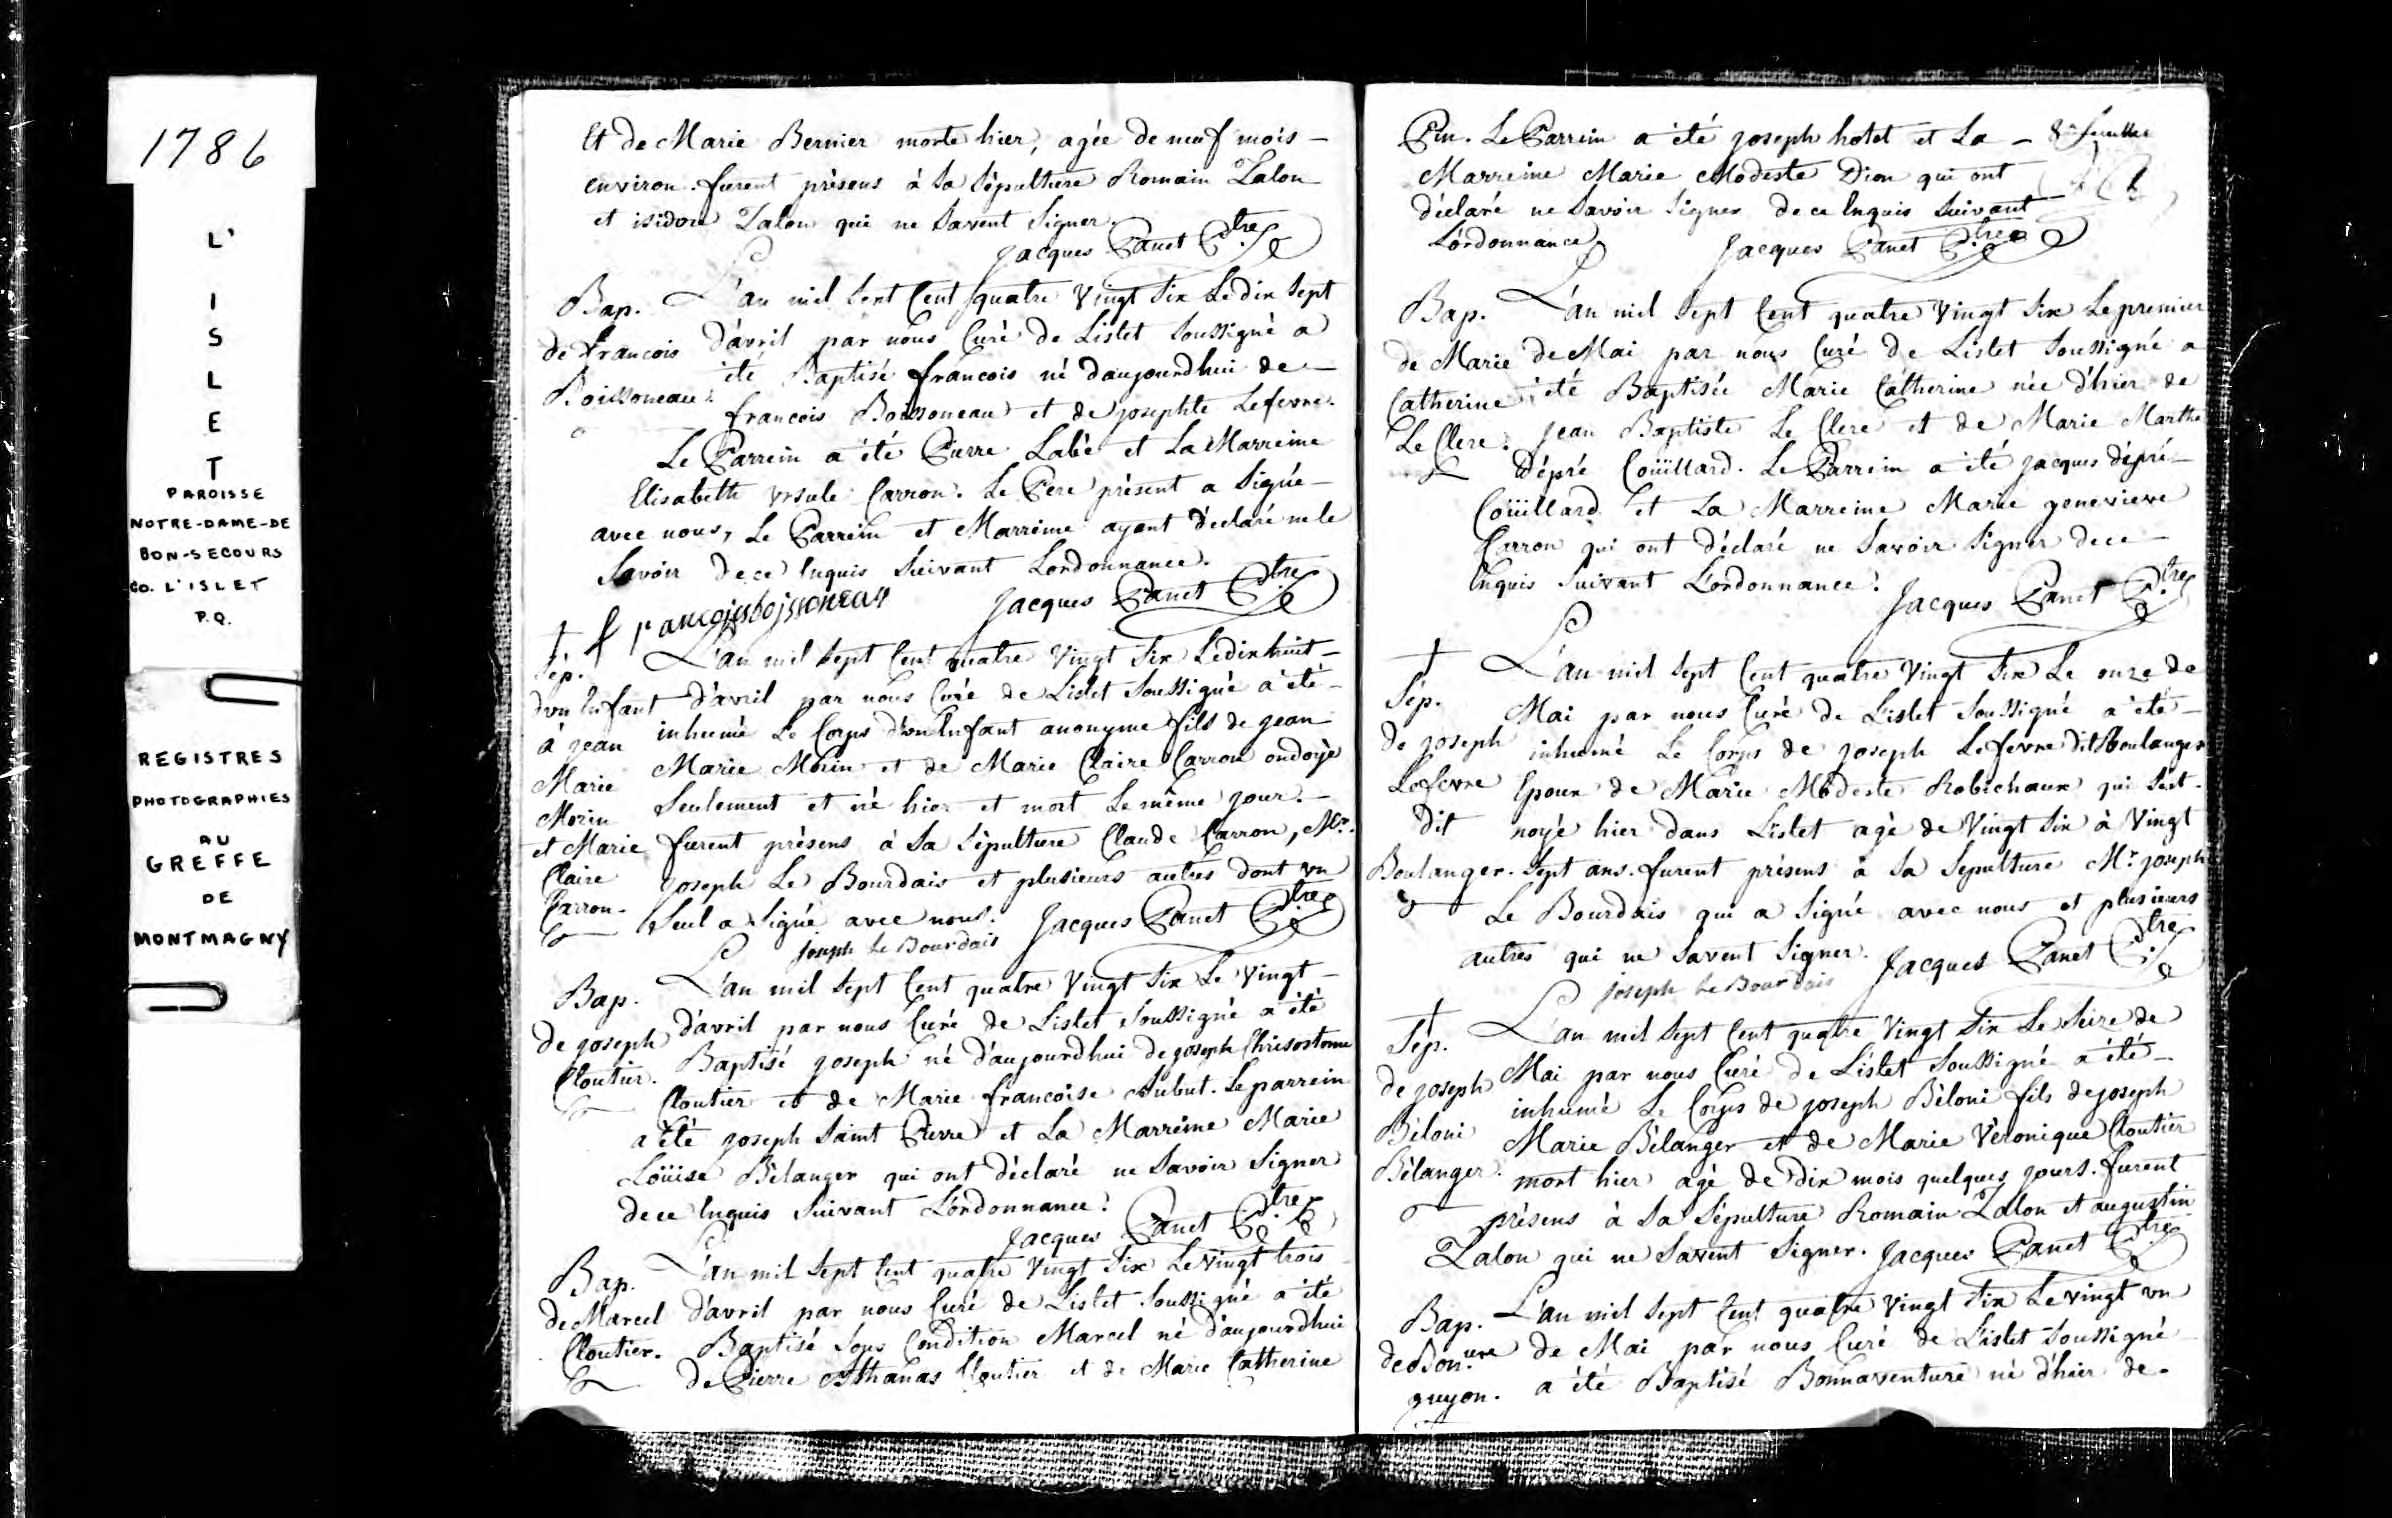 1786
L'
I
S
L
E
T
PAROISSE
NOTRE-DAME-DE
BON-SECOURS
CO. L'ISLET
P.Q.
REGISTRES
PHOTOGRAPHIES
AU
GREFFE
DE
MONTMAGNY
Et de Marie Bernier morte hier, agée de neuf mois
environ. furent présens à sa sépulture Romain Zalon
et isidore Zalon qui ne savent signer.
Jacques Panet Ptre
Bap.
de francois
Boissoneau.
L'an mil sept Cent quatre vingt six Le dix sept
d'avril par nous Curé de Lislet soussigné a
été Baptisé francois né daujourdhui de
francois Boissoneau et de josephte Lefevre.
Le Parrein a été Pierre Labé et La Marreine
Elisabeth ursule Carron. Le Pere présent a signé
avec nous, Le Parrein et Marreine ayant déclaré ne le
savoir de ce Enquis suivant Lordonnance.
francojs bojssoneau Jacques Panet Ptre
†
Sép.
d'un Enfant
à jean
Marie
Morin
et Marie
Claire
Carron.
L'an mil sept Cent quatre vingt six Le dix huit
d'avril par nous Curé de Lislet soussigné a été
inhumé Le Corps d'un Enfant anonyme fils de jean
Marie Morin et de Marie Claire Carron ondoÿé
seulement et né hier et mort le même jour.
furent présens à sa sépulture Claude Carron, Mr.
joseph Le Bourdais et plusieurs autres dont un
seul a signé avec nous. Jacques Panet Ptre
joseph Le Bourdais
Bap.
de joseph
Cloutier.
L'an mil sept Cent quatre vingt six Le vingt
d'avril par nous Curé de Lislet soussigné a été
Baptisé joseph né d'aujourdhui de joseph Chrisostome
Cloutier et de Marie francoise Aubut. Le parrein
a été joseph Saint Pierre et La Marreine Marie
Loüise Bélanger qui ont déclaré ne savoir signer
de ce Enquis suivant L'ordonnance.
Jacques Panet Ptre
Bap.
de Marcel
Cloutier.
L'an mil sept Cent quatre vingt six Le vingt trois
d'avril par nous Curé de Lislet soussigné a été
Baptisé sous Condition Marcel né d'aujourdhui
de Pierre Athanas Cloutier et de Marie Catherine
Pin. Le Parrein a été joseph hotot et La
Marreine Marie Modeste Dion qui ont
déclaré ne savoir signer de ce Enquis suivant
L'ordonnance
Jacques Panet Ptre
Bap.
de Marie
Catherine
Le Clerc.
L'an mil sept Cent quatre vingt six Le premier
de Mai par nous Curé de Lislet soussigné a
été Baptisée Marie Catherine née d'hier de
jean Baptiste Le Clerc et de Marie Marthe
Dépré Coüillard. Le Parrein a été jacques dépré
Coüillard et La Marreine Marie genevieve
Carron qui ont déclaré ne savoir signer de ce
Enquis suivant L'ordonnance.
Jacques Panet Ptre
†
Sép.
de joseph
Lefevre
dit
Boulanger.
L'an mil sept Cent quatre vingt six Le onze de
Mai par nous Curé de Lislet soussigné a été
inhumé Le Corps de joseph Lefevre dit Boulanger
Epoux de Marie Modeste Robichaux qui s'est
noyé hier dans Lislet agé de vingt six à vingt
sept ans. furent présens à sa sepulture Mr. joseph
Le Bourdais qui a signé avec nous et plusieurs
autres qui ne savent signer. Jacques Panet Ptre
joseph Le Bourdais
†
Sép.
de joseph
Béloni
Bélanger.
L'an mil sept Cent quatre vingt six Le seize de
Mai par nous Curé de Lislet soussigné a été
inhumé Le Corps de joseph Béloni fils de joseph
Marie Bélanger et de Marie Véronique Cloutier
mort hier agé de dix mois quelques jours. furent
présens à sa sépulture Romain Zalon et augustin
Zalon qui ne savent signer. Jacques Panet Ptre
Bap.
de Bon.ure
guyon.
L'an mil sept Cent quatre vingt six Le vingt un
de Mai par nous Curé de Lislet soussigné
a été Baptisé Bonnaventure né d'hier de